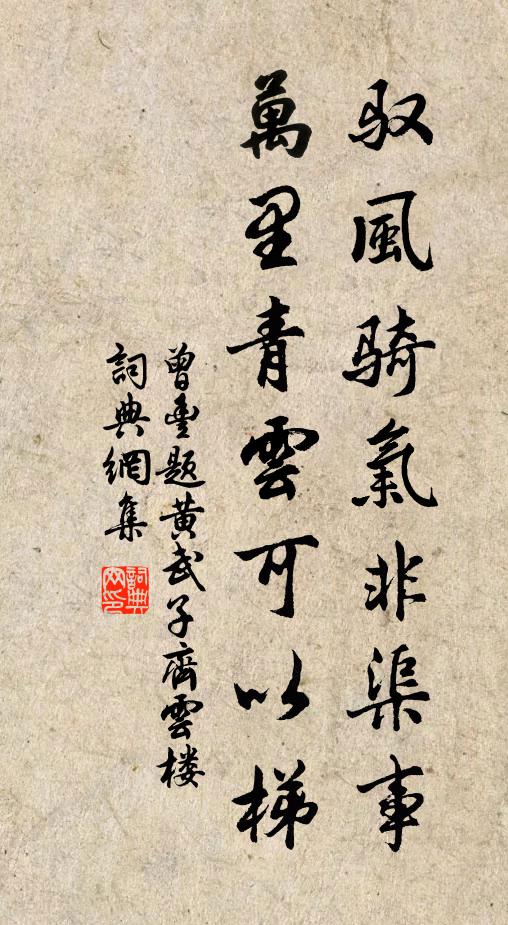 驭風騎氣非渠事
萬里青雲可以梯
曾豐题黄武子齊雲楼
詞典網集
詞典網印